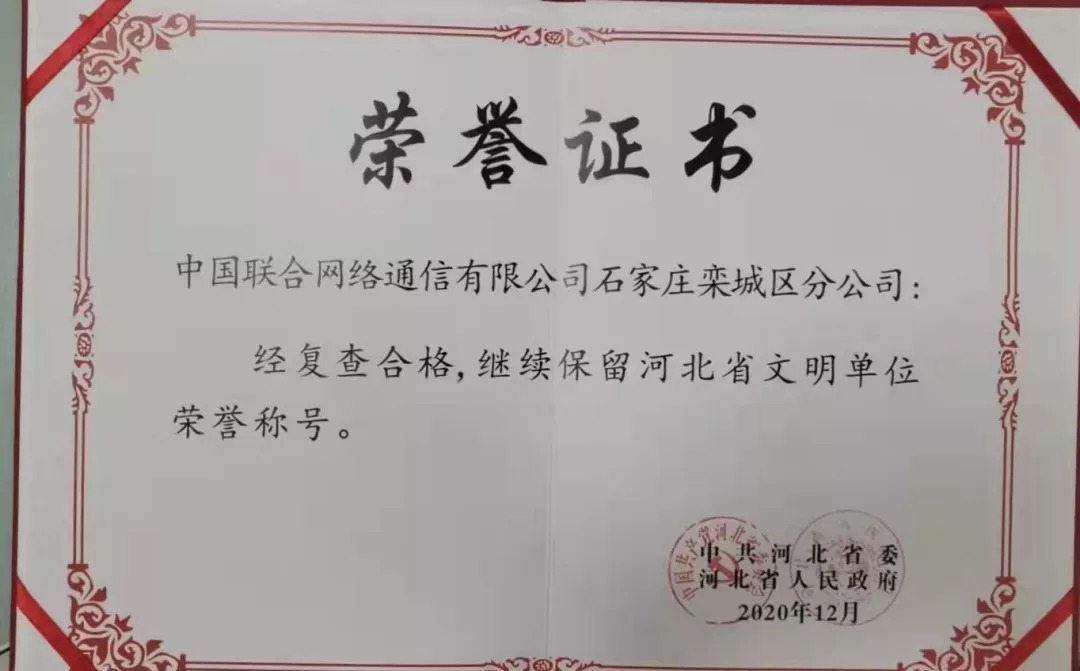 荣誉证书
中国联合网络通信有限公司石家庄栾城区分公司：
经复查合格，继续保留河北省文明单位
荣誉称号。
中共河北省委
河北省人民政府
2020年12月
中国共产党河北省委